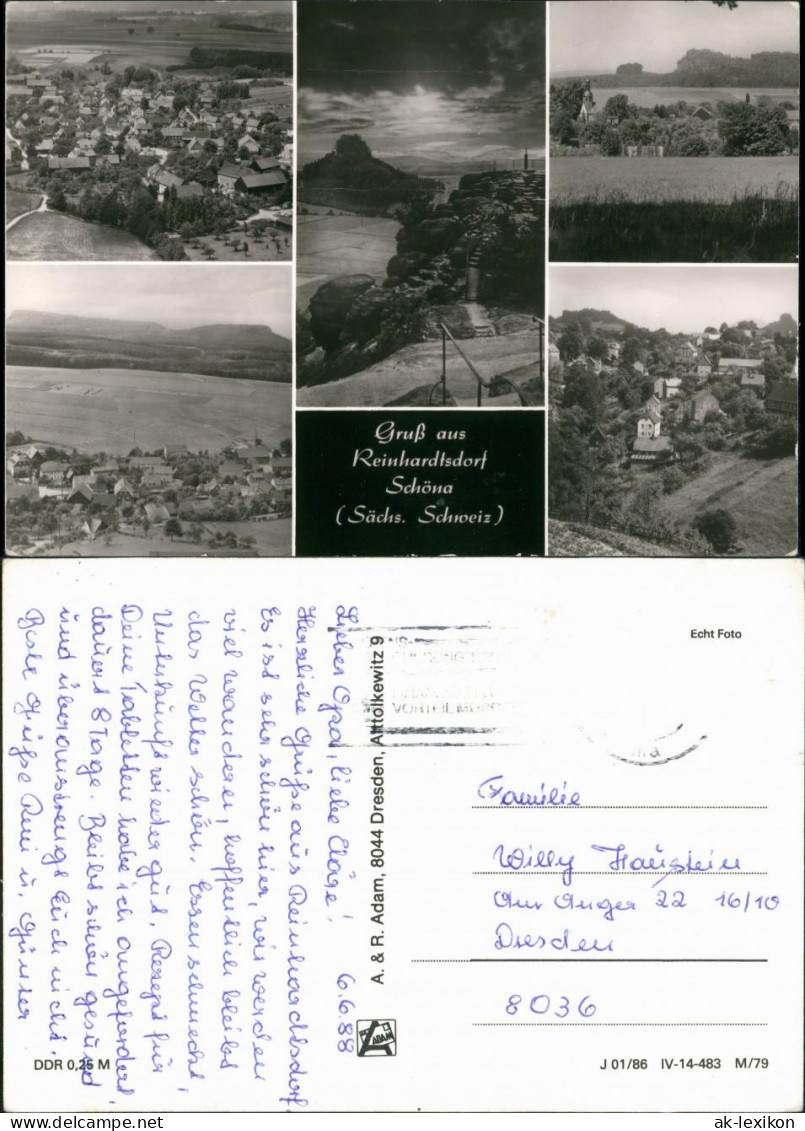 Gruß aus
Reinhardtsdorf
Schöna
(Sächs. Schweiz)
Lieber Opa, liebe Cläre! 6.6.88
Herzliche Grüße aus Reinhardtsdorf.
Es ist sehr schön hier, wir werden
viel wandern, hoffentlich bleibt
das Wetter schön. Essen schmeckt,
Unterkunft wieder gut. Rezept für
Deine Tabletten habe ich angefordert,
dauert 8 Tage. Bleibt schön gesund
und überanstrengt Euch nicht.
Beste Grüße u. Günter
A. & R. Adam, 8044 Dresden, Alttolkewitz 9
ADAM
DDR 0,25 M
Echt Foto
Familie
Willy Haustein
Am Anger 22 16/10
Dresden
8036
J 01/86 IV-14-483 M/79
ak-lexikon